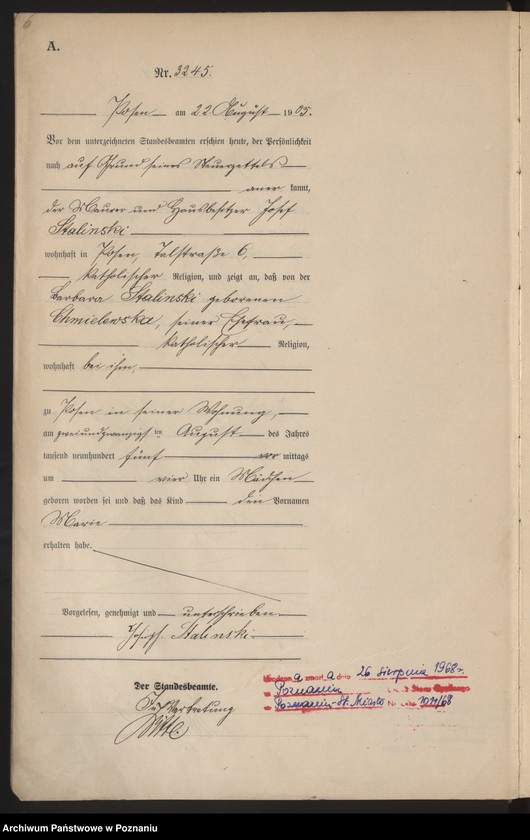 6
A.
Nr. 3245.
Posen am 22 August 1905.
Vor dem unterzeichneten Standesbeamten erschien heute, der Persönlichkeit
nach auf Grund seines Steuerzettels
aner kannt,
der Maurer und Hausbesitzer Josef
Stalinski
wohnhaft in Posen, Talstraße 6,
katholischer Religion, und zeigt an, daß von der
Barbara Stalinski geborenen
Chmielewska, seiner Ehefrau,
katholischer Religion,
wohnhaft bei ihm,
zu Posen in seiner Wohnung,
am zweiundzwanzigsten August des Jahres
tausend neunhundert fünf vor mittags
um vier Uhr ein Mädchen
geboren worden sei und daß das Kind den Vornamen
Marie
erhalten habe.
Vorgelesen, genehmigt und unterschrieben
Joseph Stalinski
Der Standesbeamte.
In Vertretung
Witte
a zmarł a dnia 26 sierpnia 1968 r.
w Poznaniu Stanu Cywilnego
w Poznaniu-St. Miasto
Archiwum Państwowe w Poznaniu